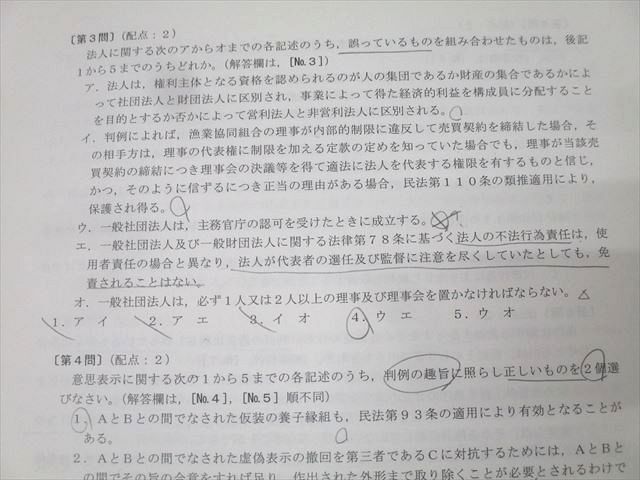 〔第３問〕（配点：２）
法人に関する次のアからオまでの各記述のうち，誤っているものを組み合わせたものは，後記
１から５までのうちどれか。（解答欄は，［№３］）
ア．法人は，権利主体となる資格を認められるのが人の集団であるか財産の集合であるかによ
って社団法人と財団法人に区別され，事業によって得た経済的利益を構成員に分配すること
を目的とするか否かによって営利法人と非営利法人に区別される。
イ．判例によれば，漁業協同組合の理事が内部的制限に違反して売買契約を締結した場合，そ
の相手方は，理事の代表権に制限を加える定款の定めを知っていた場合でも，理事が当該売
買契約の締結につき理事会の決議等を得て適法に法人を代表する権限を有するものと信じ，
かつ，そのように信ずるにつき正当の理由がある場合，民法第１１０条の類推適用により，
保護され得る。
ウ．一般社団法人は，主務官庁の認可を受けたときに成立する。
エ．一般社団法人及び一般財団法人に関する法律第７８条に基づく法人の不法行為責任は，使
用者責任の場合と異なり，法人が代表者の選任及び監督に注意を尽くしていたとしても，免
責されることはない。
オ．一般社団法人は，必ず１人又は２人以上の理事及び理事会を置かなければならない。
１．ア イ ２．ア エ ３．イ オ ４．ウ エ ５．ウ オ
〔第４問〕（配点：２）
意思表示に関する次の１から５までの各記述のうち，判例の趣旨に照らし正しいものを２個選
びなさい。（解答欄は，［№４］，［№５］順不同）
１．ＡとＢとの間でなされた仮装の養子縁組も，民法第９３条の適用により有効となることが
ある。
２．ＡとＢとの間でなされた虚偽表示の撤回を第三者であるＣに対抗するためには，ＡとＢと
の間でその旨の合意をすれば足り，作出された外形まで取り除くことが必要とされるわけで